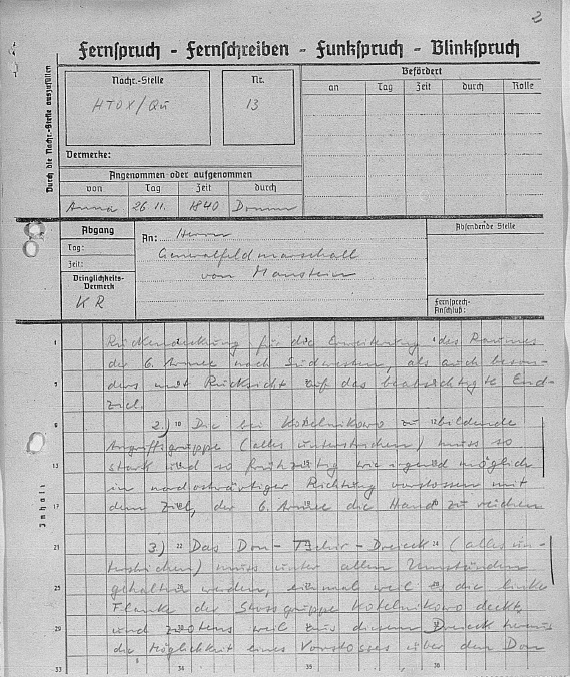 2
Fernspruch - Fernschreiben - Funkspruch - Blinkspruch
Durch die Nachr.-Stelle auszufüllen
Nachr.-Stelle
HTOX/Qu
Nr.
13
Befördert
an Tag Zeit durch Rolle
Vermerke:
Angenommen oder aufgenommen
von Tag Zeit durch
Anna 26.11. 1840
Abgang
Tag:
Zeit:
Dringlichkeits-
Vermerk
KR
An: Herrn
Generalfeldmarschall
von Manstein
Absendende Stelle
Fernsprech-
Anschluß:
Inhalt
1 Rückendeckung für die Erweiterung des Raumes
der 6. Armee nach Südwesten, als auch beson-
5 ders mit Rücksicht auf das beabsichtigte End-
ziel.
9 2.) 10 Die bei Kotelnikowo zu 12 bildende
Angriffsgruppe (alles unterstrichen) muss so
13 stark und so frühzeitig wie irgend möglich
in nordostwärtiger Richtung vorstossen mit
17 dem Ziel, der 6. Armee die Hand zu reichen
21 3.) 22 Das Don-Tschir-Dreieck 24 (alles un-
terstrichen) muss unter allen Umständen
25 gehalten werden, einmal weil es die linke
Flanke der Stossgruppe Kotelnikowo deckt,
29 und zweitens weil aus diesem Dreieck heraus
die Möglichkeit eines Vorstosses über den Don
33 34 35 36